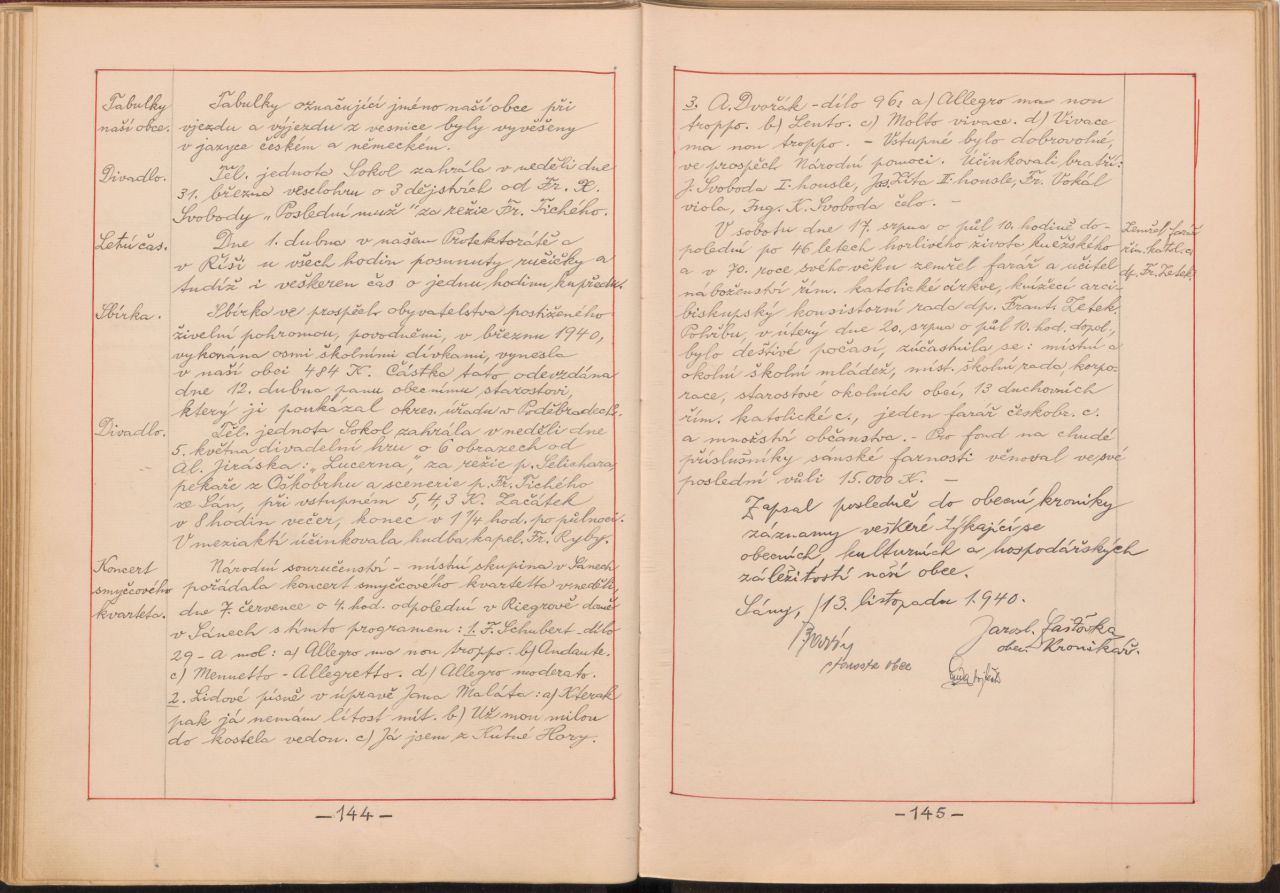 Tabulky
naší obce.
Tabulky označující jméno naší obce při
vjezdu a výjezdu z vesnice byly vyvěšeny
v jazyce českém a německém.
Divadlo.
Těl. jednota Sokol zahrála v neděli dne
31. března veselohru o 3 dějstvích od Fr. X.
Svobody „Poslední muž" za režie Fr. Tichého.
Letní čas.
Dne 1. dubna v našem Protektorátě a
v Říši u všech hodin posunuty ručičky a
tudíž i veškeren čas o jednu hodinu kupředu.
Sbírka.
Sbírka ve prospěch obyvatelstva postiženého
živelní pohromou, povodněmi, v březnu 1940,
vykonána osmi školními dívkami, vynesla
v naší obci 484 K. Částka tato odevzdána
dne 12. dubna panu obecnímu starostovi,
který ji poukázal okres. úřadu v Poděbradech.
Divadlo.
Těl. jednota Sokol zahrála v neděli dne
5. května divadelní hru o 6 obrazech od
Al. Jiráska: „Lucerna", za režie p. Selichara,
pekaře z Oškobrhu a scenerie p. Fr. Tichého
ze Sán, při vstupném 5, 4, 3 K. Začátek
v 8 hodin večer, konec v 1 1/4 hod. po půlnoci.
V meziaktí účinkovala hudba kapel. Fr. Ryby.
Koncert
smyčcového
kvarteta.
Národní souručenství - místní skupina v Sánech
pořádala koncert smyčcového kvartetta v neděli,
dne 7. července o 4. hod. odpolední v Riegrově domě
v Sánech s tímto programem: 1. F. Schubert - dílo
29 - A mol: a) Allegro ma non troppo. b) Andante.
c) Menuetto - Allegretto. d) Allegro moderato.
2. Lidové písně v úpravě Jana Maláta: a) Kterak
pak já nemám lítost mít. b) Už mou milou
do kostela vedou. c) Já jsem z Kutné Hory.
- 144 -
3. A. Dvořák - dílo 96: a) Allegro ma non
troppo. b) Lento. c) Molto vivace. d) Vivace
ma non troppo. - Vstupné bylo dobrovolné,
ve prospěch Národní pomoci. Účinkovali bratři:
J. Svoboda I. housle, Jos. Zíta II. housle, Fr. Vokál
viola, Ing. K. Svoboda čelo. -
V sobotu dne 17. srpna o půl 10. hodině do-
polední po 46 letech horlivého života kněžského
a v 70. roce svého věku zemřel farář a učitel
náboženství řím. katolické církve, knížecí arci-
biskupský konsistorní rada dp. Frant. Zetek.
Pohřbu, v úterý dne 20. srpna o půl 10. hod. dopol.,
bylo deštivé počasí, zúčastnila se: místní a
okolní školní mládež, míst. školní rada, korpo-
race, starostové okolních obcí, 13 duchovních
řím. katolické c., jeden farář českobr. c.
a množství občanstva. - Pro fond na chudé
příslušníky sánské farnosti věnoval ve své
poslední vůli 15.000 K. -
Zemřel farář
řím. katol. c.
dp. Fr. Zetek.
Zapsal posledně do obecní kroniky
záznamy veškeré týkající se
obecních, kulturních a hospodářských
záležitostí naší obce.
Sány, 13. listopadu 1940.
Jarosl. Lašťovka
obec. kronikář.
starosta obce
- 145 -